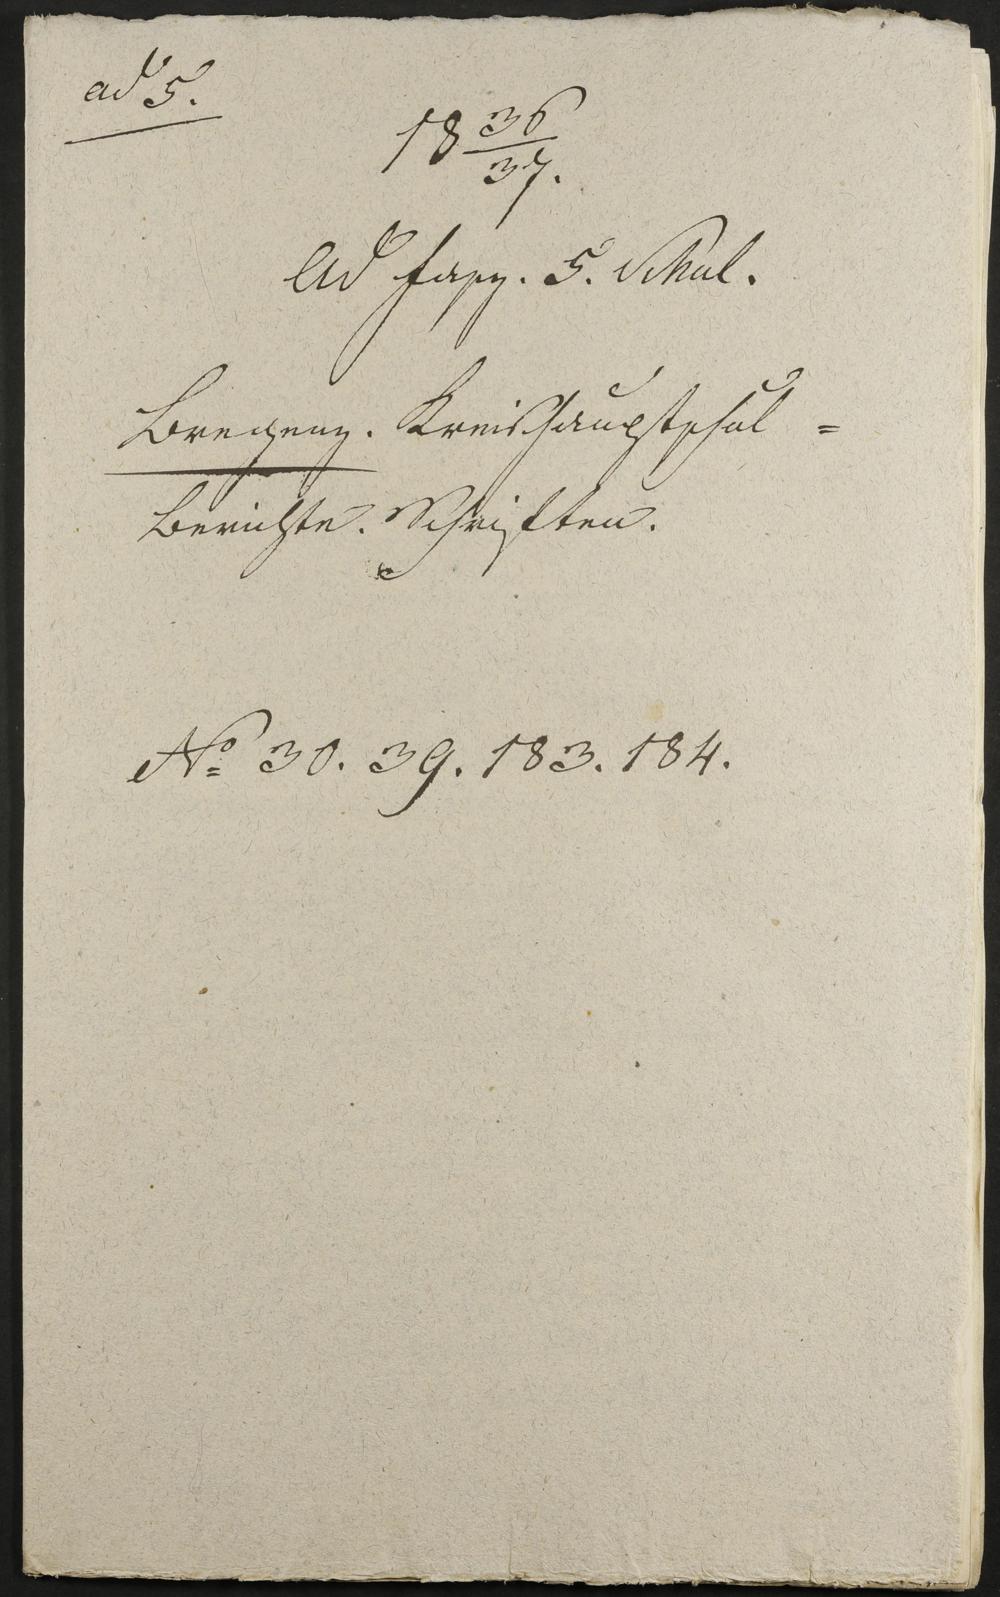 ad 5.
18 36/37.
Ad fasz. 5. Schul.
Bregenz. Kreishauptschul =
Berichte. Schriften.
No 30. 39. 183. 184.